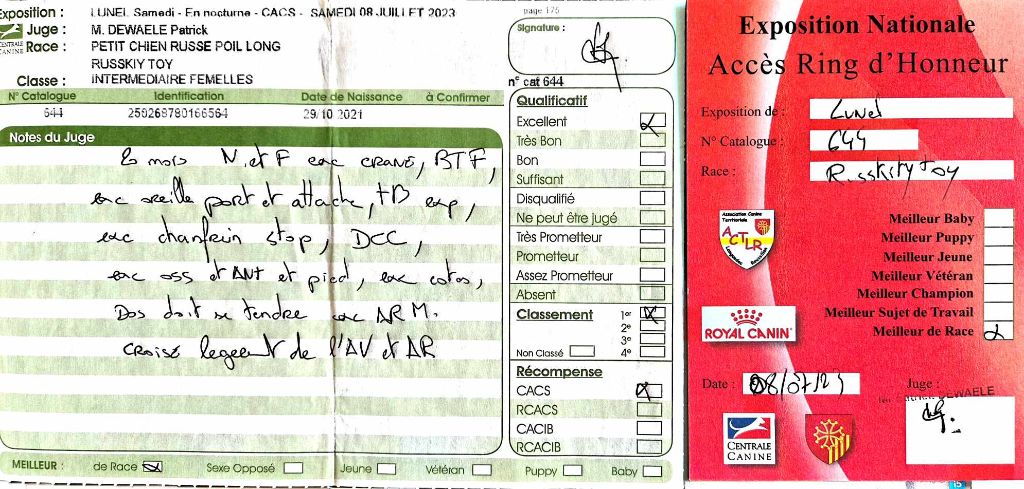 Exposition : LUNEL Samedi - En nocturne - CACS - SAMEDI 08 JUILLET 2023
page 175
Juge : M. DEWAELE Patrick
CENTRALE CANINE
Race : PETIT CHIEN RUSSE POIL LONG
RUSSKIY TOY
Classe : INTERMEDIAIRE FEMELLES
Signature :
n° cat 644
N° Catalogue Identification Date de Naissance à Confirmer
644 250268780166564 29/10/2021
Notes du Juge
mois N et F exc crane, BTF,
exc oreille port et attache, TB exp,
exc chanfrein stop, DCC,
exc oss et ANT et pied, exc cotes,
Dos doit se tendre exc ARM.
croisé legeent de l'AV et AR
Qualificatif
Excellent
Très Bon
Bon
Suffisant
Disqualifié
Ne peut être jugé
Très Prometteur
Prometteur
Assez Prometteur
Absent
Classement 1er
2e
3e
Non Classé 4e
Récompense
CACS
RCACS
CACIB
RCACIB
MEILLEUR : de Race Sexe Opposé Jeune Vétéran Puppy Baby
Exposition Nationale
Accès Ring d'Honneur
Exposition de : Lunel
N° Catalogue : 644
Race : Russkity Toy
Association Canine Territoriale
ACTLR
Meilleur Baby
Meilleur Puppy
Meilleur Jeune
Meilleur Vétéran
Meilleur Champion
Meilleur Sujet de Travail
Meilleur de Race
ROYAL CANIN
Date : 08/07/23
Juge :
DEWAELE
CENTRALE
CANINE
15